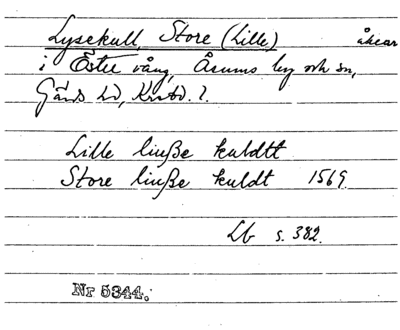 Lysekull, Store (Lille) åkrar
i Östre vång, Åsums by och sn,
Gärds hd, Krist. l.
Lille liuße kuldtt
Store liuße kuldt 1569.
Lb s. 382.
Nr 5344.